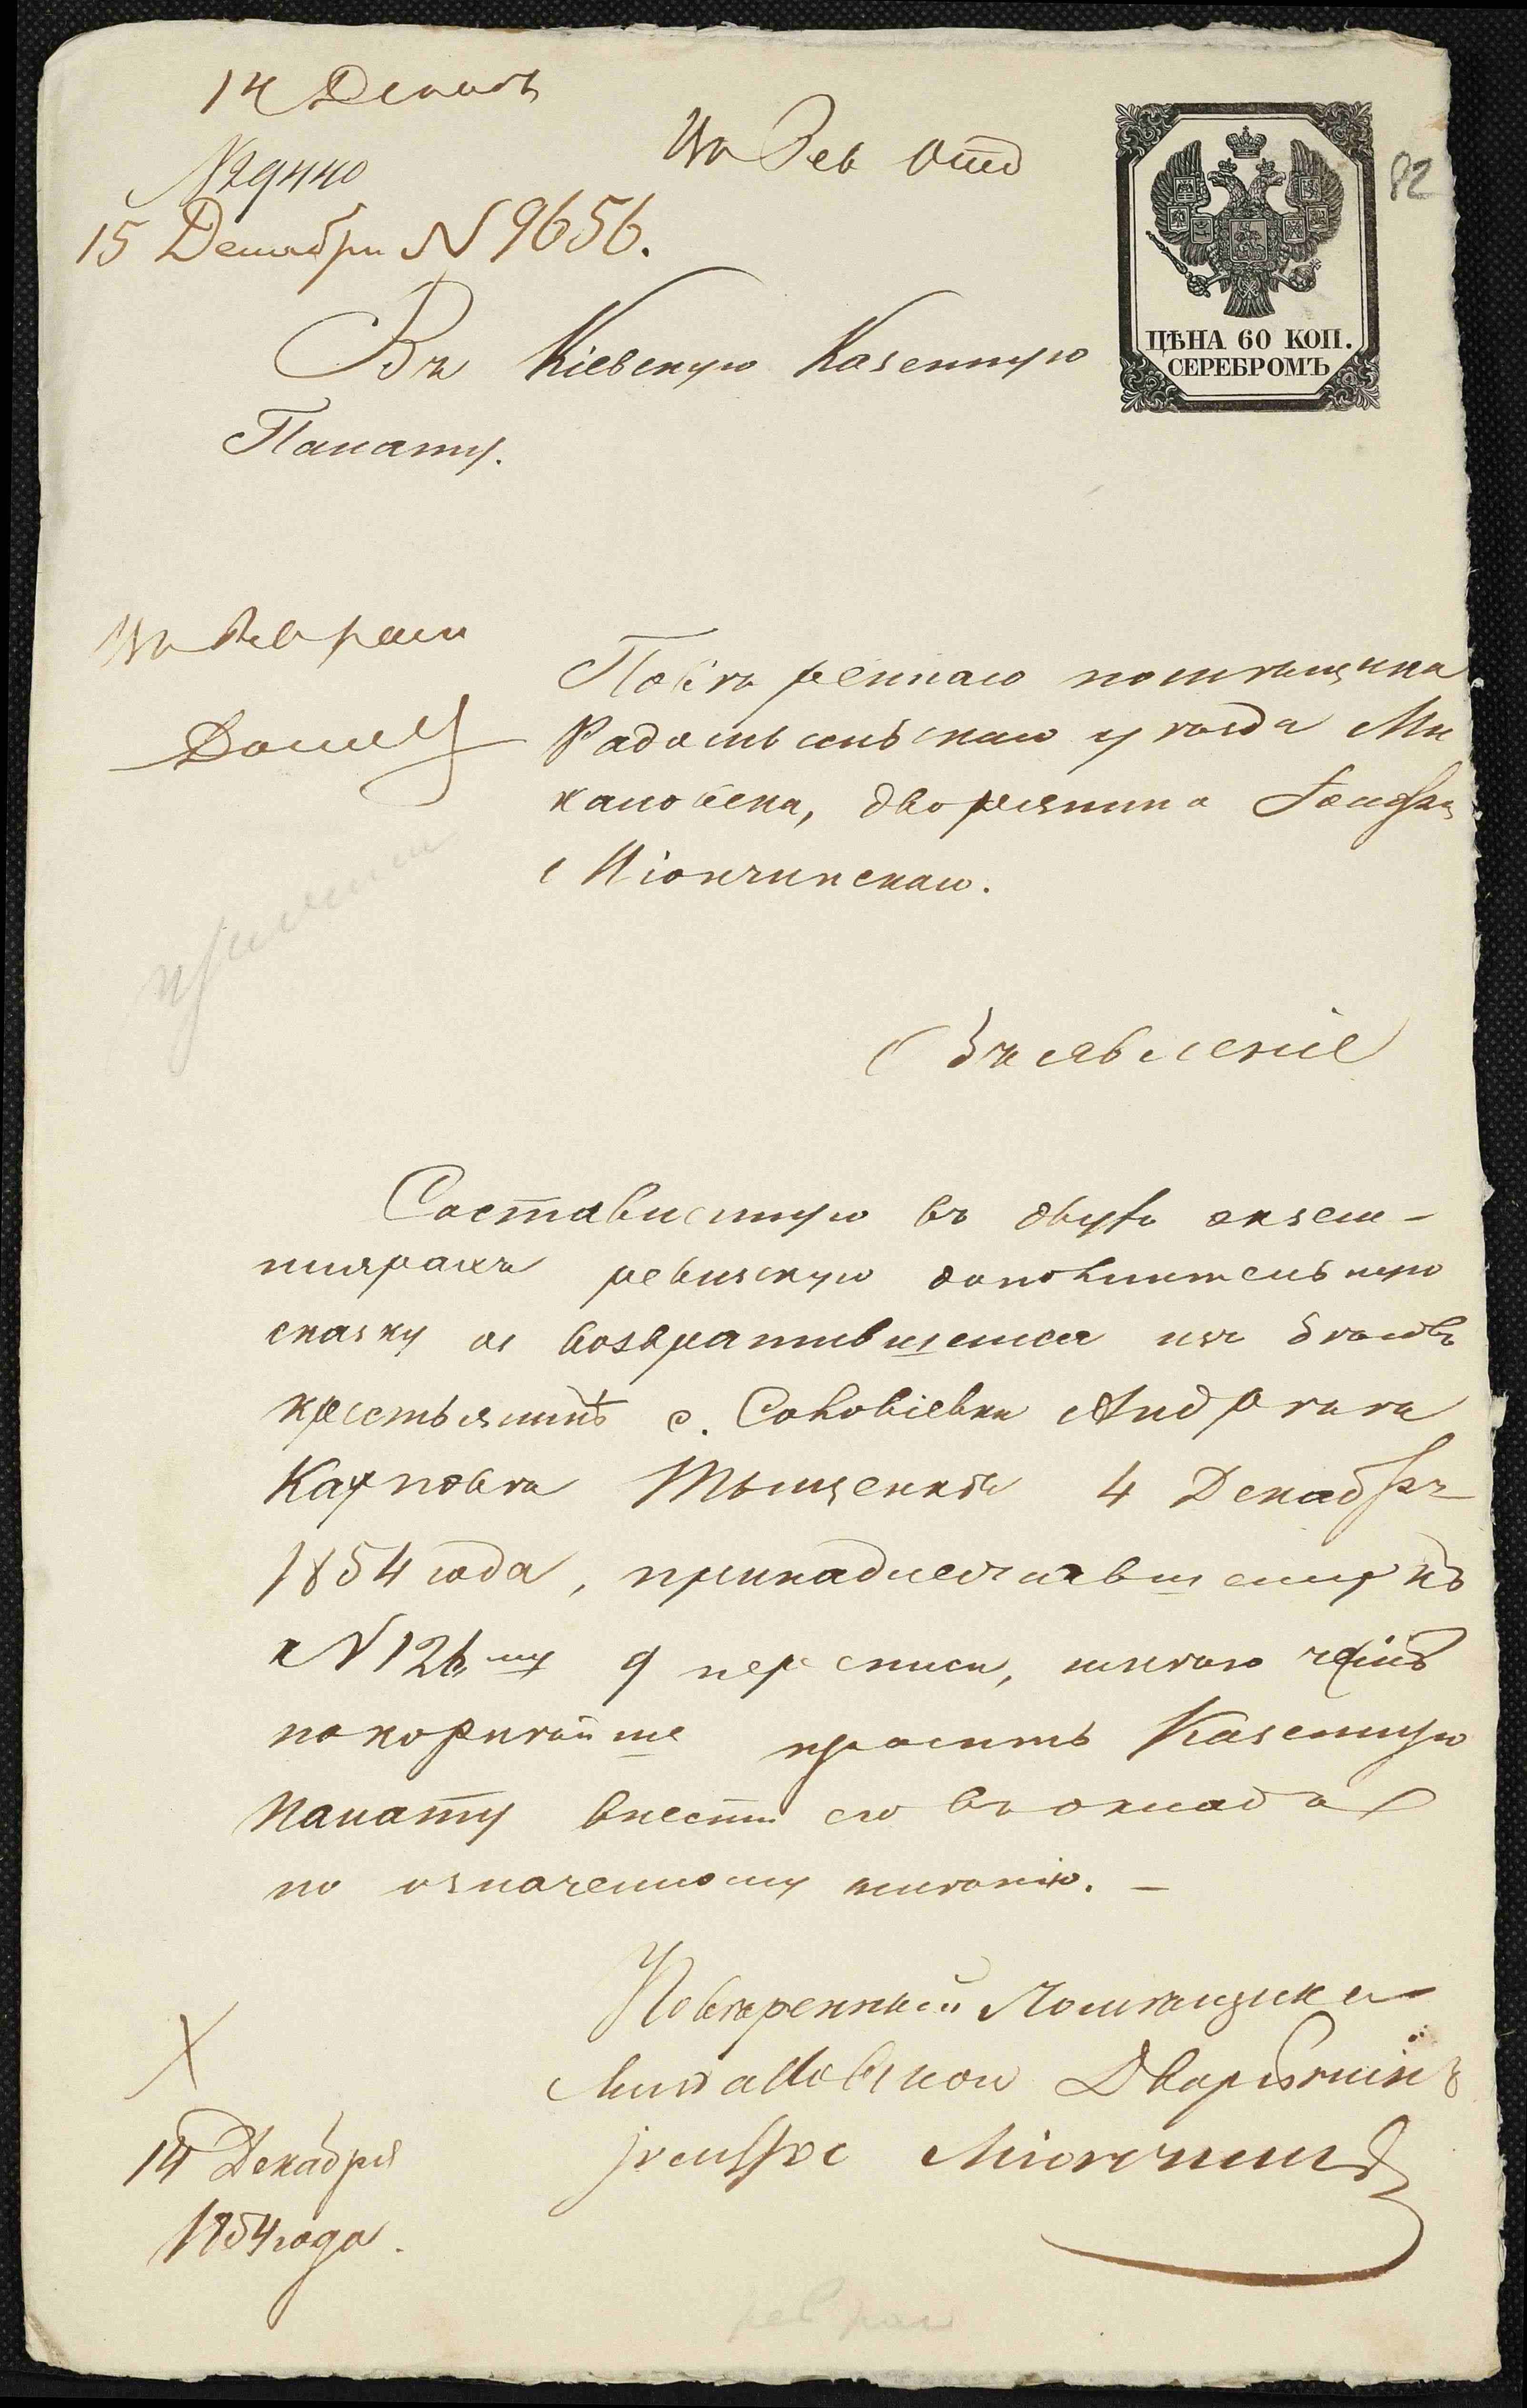 14 Декаб
На Рев Отд
82
№ 9440
15 Декабря N 9656.
ЦѢНА 60 КОП.
СЕРЕБРОМЪ
Въ Кіевскую Казенную
Палату.
На Рев
Повѣреннаго помѣщика
Радомысльскаго уѣзда Ми
халовска, дворянина Іосифа
Міончинскаго.
Объявленіе
Составленную въ двухъ экзем-
плярахъ ревизскую дополнительную
сказку о возвратившемся изъ бѣговъ
крестьянинѣ с. Соловіевки Андрѣѣ
Карповѣ Тыщенкѣ 4 Декабря
1854 года, принадлежавшему къ
N 126му 9 переписи, имѣю честь
покорнѣйше просить Казенную
Палату внести его въ окладъ
по означенному имѣнію. —
Повѣренный Помѣщика
Дворянинъ
14 Декабря
1854 года.